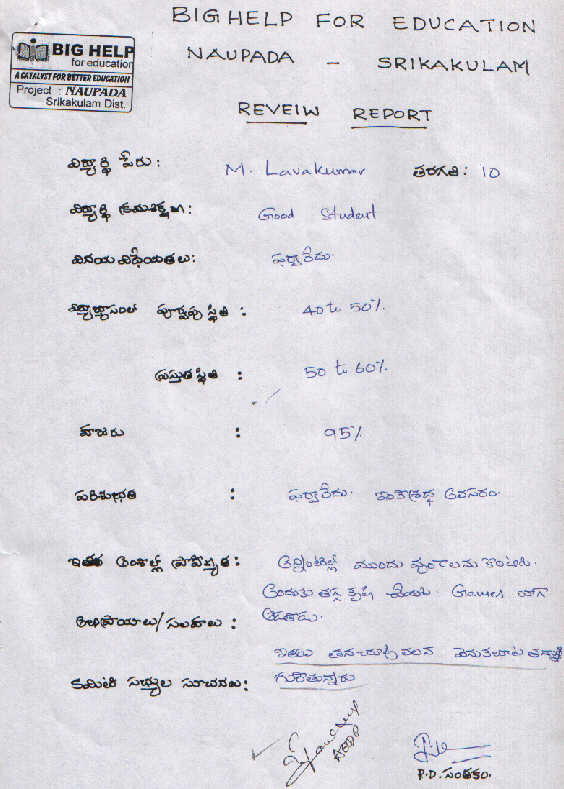 BIG HELP FOR EDUCATION
BIG HELP
for education
A CATALYST FOR BETTER EDUCATION
Project : NAUPADA
Srikakulam Dist.
NAUPADA - SRIKAKULAM
REVEIW REPORT
విద్యార్థి పేరు: M. Lavakumar తరగతి: 10
విద్యార్థి క్రమశిక్షణ: Good Student
వినయ విధేయతలు: పర్వాలేదు.
పూర్వపు స్థితి : 40 to 50%.
ప్రస్తుత స్థితి : 50 to 60%.
హాజరు : 95%
పరిశుభ్రత : పర్వాలేదు. అవసరం.
ఇతర అంశాల్లో ప్రావీణ్యత: ముందు
Games బాగా
అభిప్రాయాలు/సలహాలు : ఆడతాడు.
కమిటి సభ్యుల సూచనలు:
P.D. సంతకం.